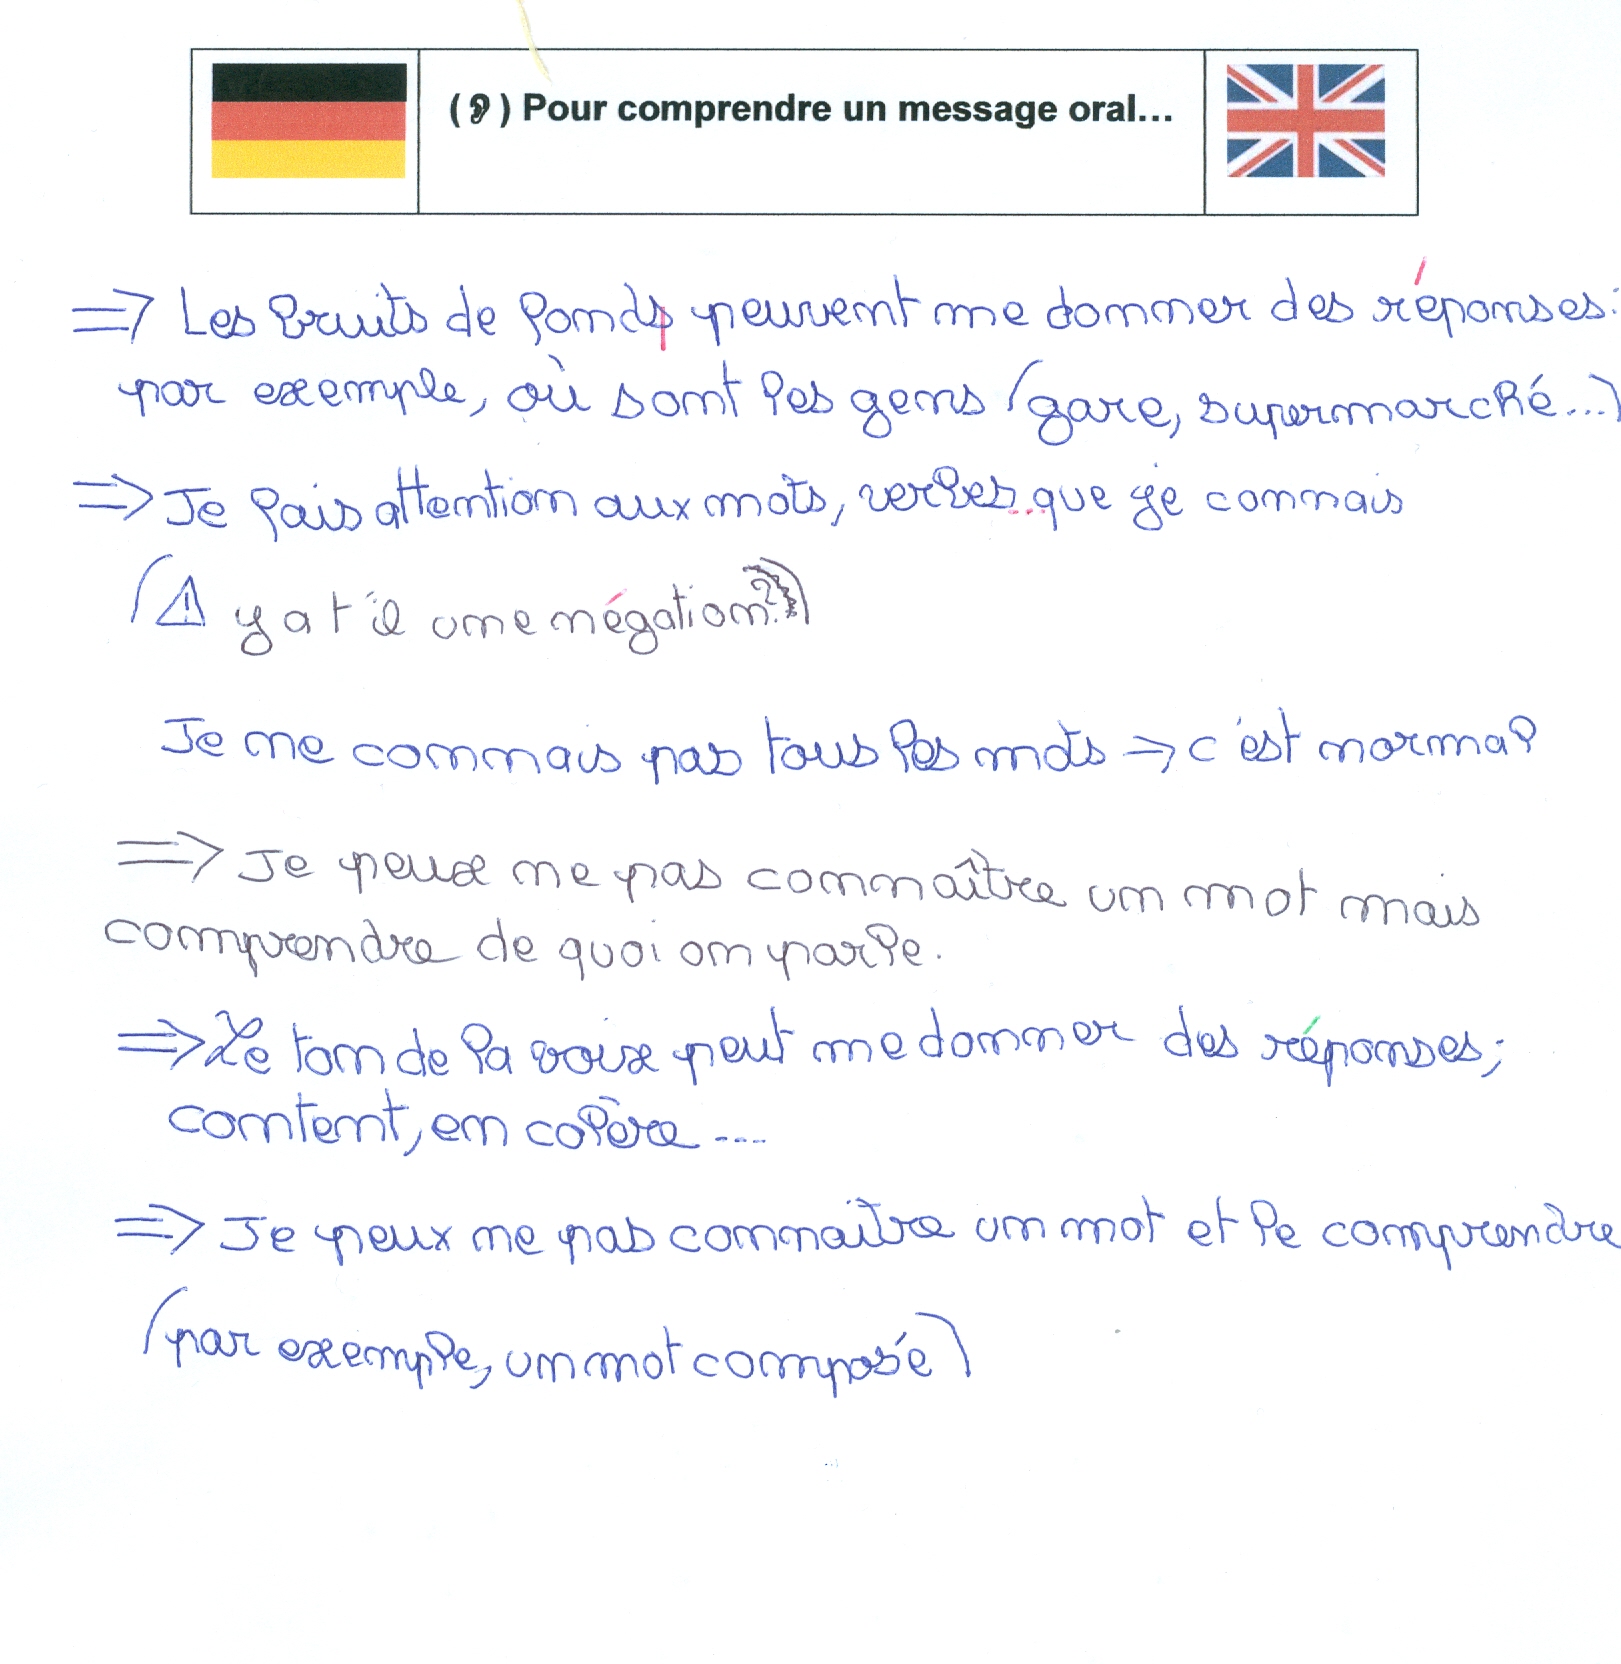 (9) Pour comprendre un message oral...
=> Les bruits de fonds peuvent me donner des réponses:
par exemple, où sont les gens (gare, supermarché...)
=> Je fais attention aux mots, verbes... que je connais
(⚠ y a t'il une négation?)
Je ne connais pas tous les mots => c'est normal
=> Je peux ne pas connaître un mot mais
comprendre de quoi on parle.
=> Le ton de la voix peut me donner des réponses;
content, en colère ....
=> Je peux ne pas connaître un mot et le comprendre
(par exemple, un mot composé)